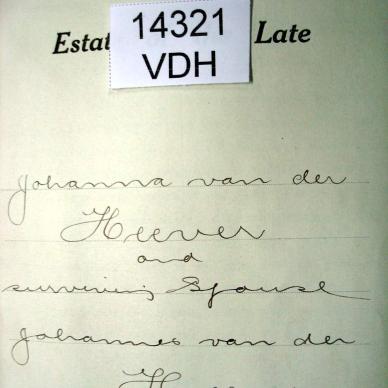 Estat Late
14321
VDH
Johanna van der
Heever
and
surviving Spouse
Johannes van der